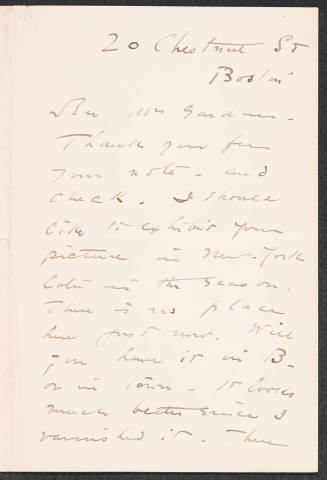 20 Chestnut St
Boston
Dear Mrs Gardner -
Thank you for
your note - and
check. I should
like to exhibit your
picture in New-York
later in the season -
There is no place
here just now. Will
you have it in B-
or in town - It looks
much better since I
varnished it - There